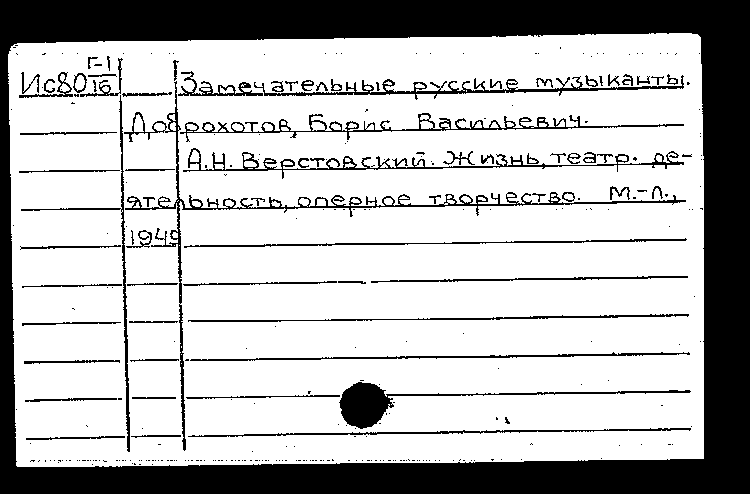 Г-1
Ис80 16 Замечательные русские музыканты.
Доброхотов, Борис Васильевич.
А.Н. Верстовский. Жизнь, театр. де-
ятельность, оперное творчество. М.-Л.,
1949